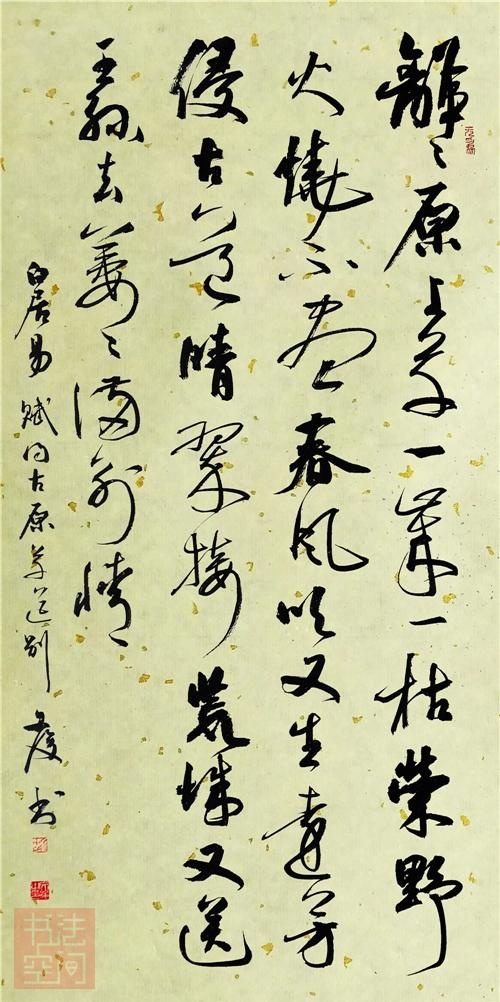 離々原上草一歲一枯榮野
火燒不盡春風吹又生遠芳
侵古道晴翠接荒城又送
王孫去萋々滿別情
白居易 賦得古原草送別
书法
空间